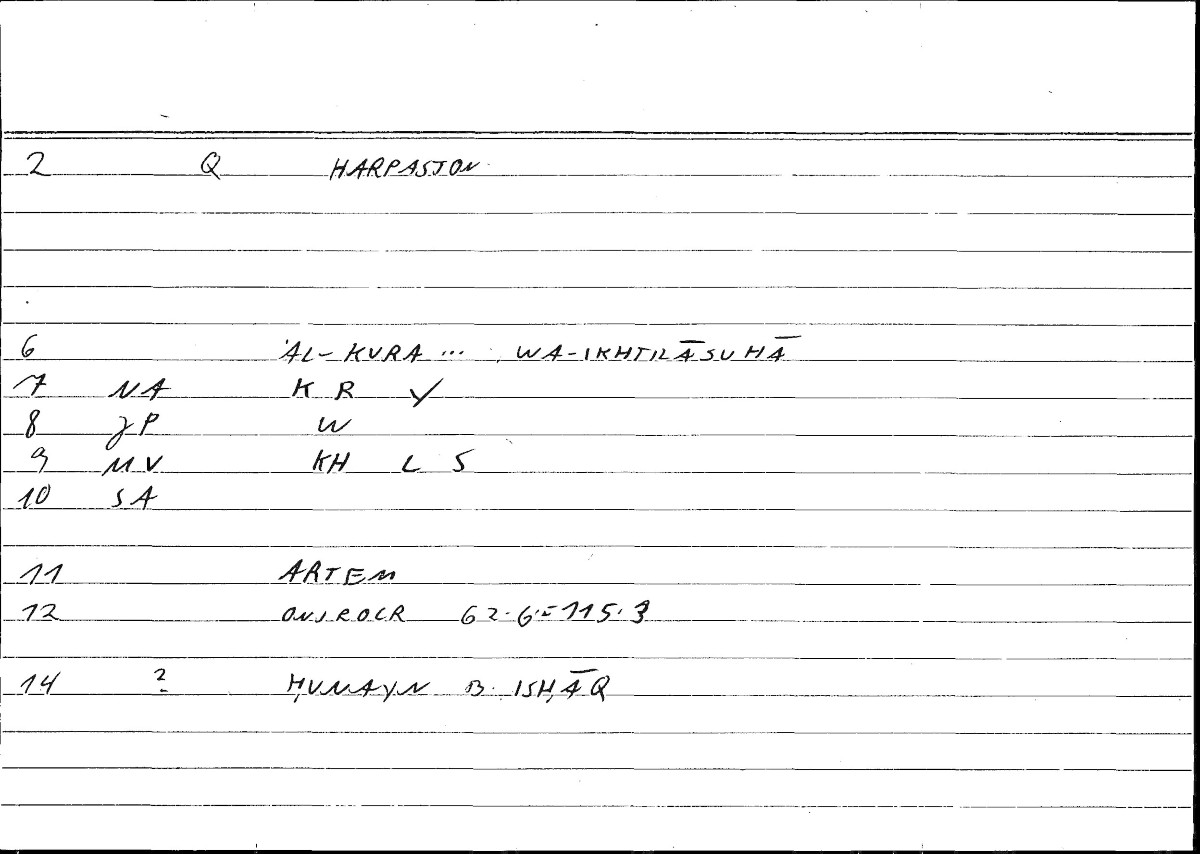 2 Q HARPASTON
6 'AL-KURA ... WA-IKHTILĀSUHĀ
7 NA K R Y
8 JP W
9 MV KH L S
10 SA
11 ARTEM
12 ONIROCR 62.6=115.3
14 2 ḤUNAYN B. ISḤĀQ